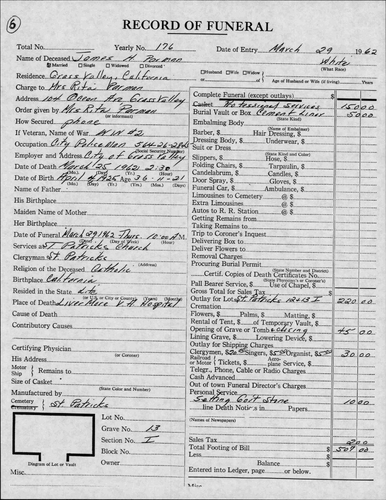 6
RECORD OF FUNERAL
Total No. Yearly No. 176 Date of Entry March 29 1962
Name of Deceased James H. Parman White
Married Single Widowed Divorced (What Race)
Residence Grass Valley, California Husband Wife Widow of
Charge to Mrs Rita Parman Age of Husband or Wife (if living) Years
Address 104 Ocean Ave Grass Valley
Order given by Mrs Rita Parman
(or informant)
How Secured phone
If Veteran, of What War W.W. #2
Occupation City Policeman
(Social Security Number)
Employer and Address City of Grass Valley
Date of Death March 25 1962 2:30
Date of Birth
Name of Father
His Birthplace
Maiden Name of Mother
Her Birthplace
Date of Funeral March 29 1962 Thurs. 10:00 A.M.
Services at St Patricks Church
Clergyman St. Patricks
(Address)
Religion of the Deceased Catholic
Birthplace California
Resided in the State Life
(U.S. or City or County)
Place of Death Livermore V.A. Hospital
Cause of Death
Contributory Causes
Certifying Physician
(or Coroner)
His Address
Motor Ship Remains to
Size of Casket
(State Color and Number)
Manufactured by
Cemetery St. Patricks
Lot No.
Grave No. 13
Section No. I
Block No.
Owner
Diagram of Lot or Vault
Misc.
Complete Funeral (except outlays)
Casket Professional Services 150.00
Burial Vault or Box Cement Liner 50.00
(State Kind)
Embalming Body
(Name of Embalmer)
Barber, $ Hair Dressing, $
Dressing Body, $ Underwear, $
Suit or Dress
(State Kind and Color)
Slippers, $ Hose, $
Folding Chairs, $ Tarpaulin, $
Candelabrum, $ Candles, $
Door Spray, $ Gloves, $
Funeral Car, $ Ambulance, $
Limousines to Cemetery @ $
Extra Limousines @ $
Autos to R. R. Station @ $
Getting Remains from
Taking Remains to
Trip to Coroner's Inquest
Delivering Box to
Deliver Flowers to
Removal Charges
Procuring Burial Permit
(State Number and District)
Certif. Copies of Death Certificates No.
Pall Bearer Service, $ Use of Chapel, $
Gross Total for Sales Tax
Outlay for Lot St. Patricks 12 & 13 I 220.00
Flowers, $ Palms, $ Matting, $
Rental of Tent, $ of Temporary Vault, $
Opening of Grave or Tomb closing 45.00
Lining Grave, $ Lowering Device, $
Outlay for Shipping Charges
Clergymen, Singers, Organist, 30.00
Railroad or Motor Tickets, $ Aeroplane Service, $
Telegr., Phone, Cable or Radio Charges
Cash Advanced
Out of town Funeral Director's Charges
Personal Service
Setting Gov't Stone 10.00
line Death Notices in Papers
(Names of Newspapers)
Sales Tax 2.00
Total Footing of Bill $ 507.00
Less
Balance
Entered into Ledger, page or below